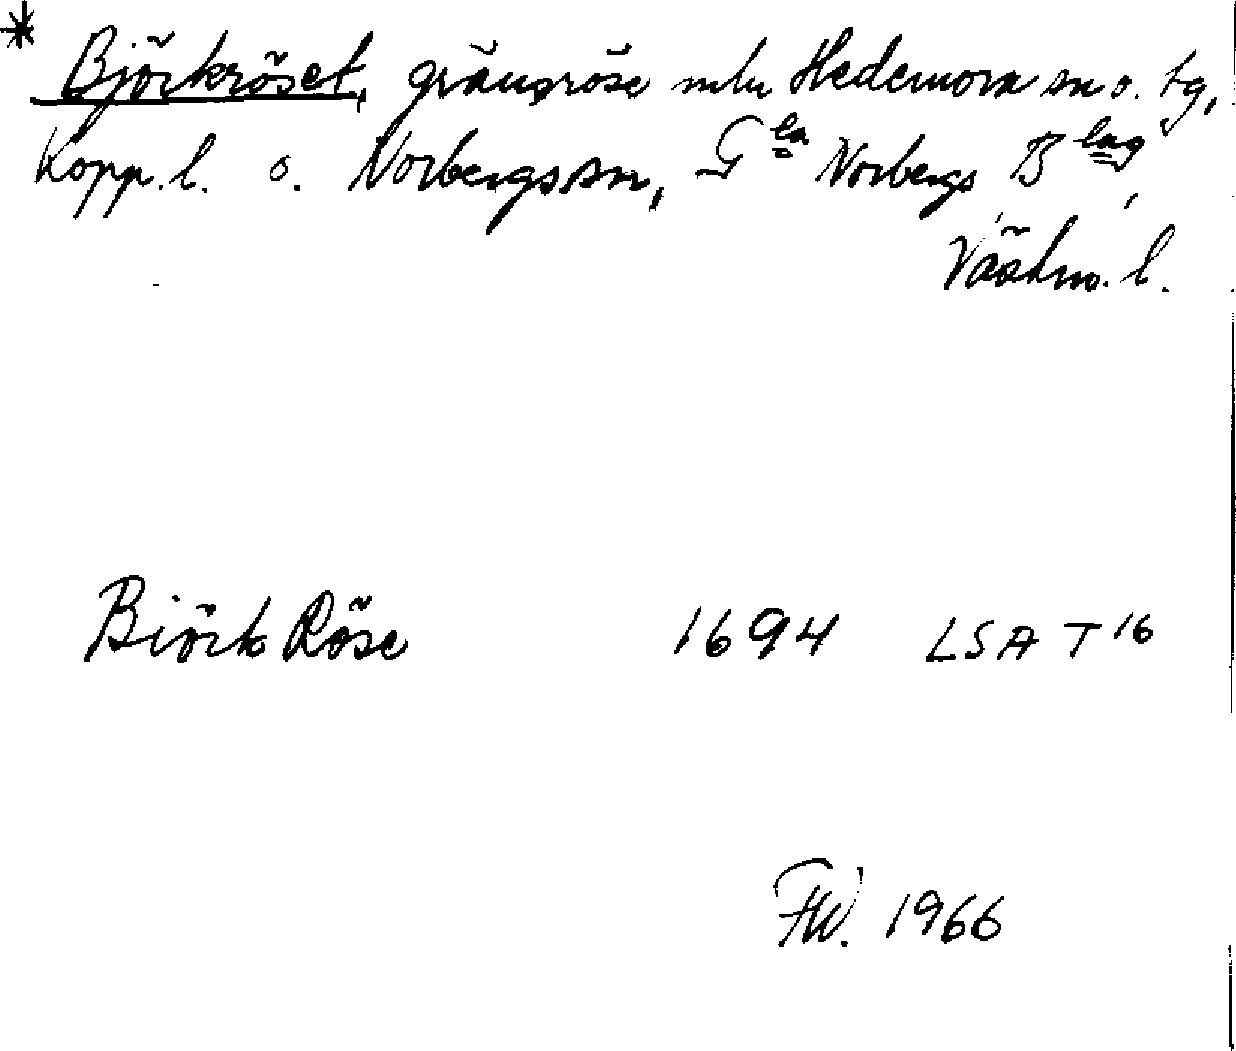 * Björkröset, gränsröse mln Hedemora sn o. tg,
Kopp. l. o. Norbergs sn, Gla Norbergs Blag,
Västm. l.
Biörk Röse 1694 LSA T 16
FW. 1966